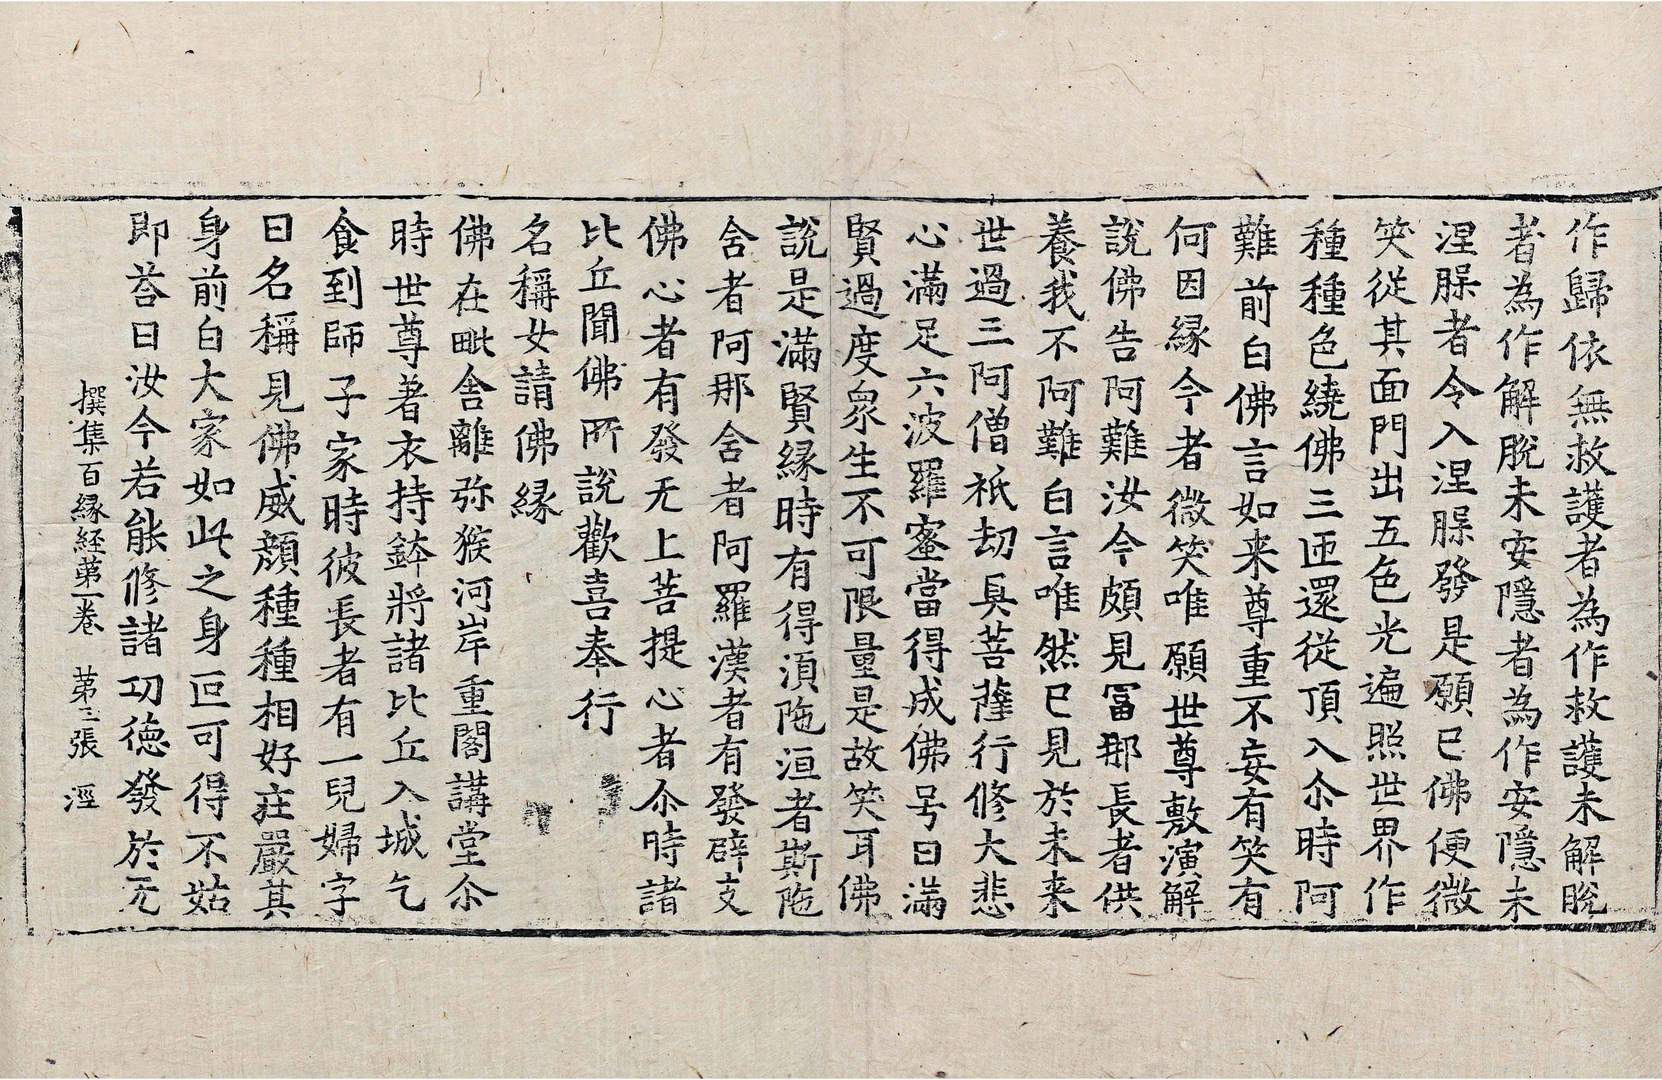 作歸依無救護者為作救護未解脫
者為作解脫未安隱者為作安隱未
涅槃者令入涅槃發是願已佛便微
笑從其面門出五色光遍照世界作
種種色繞佛三匝還從頂入尒時阿
難前白佛言如来尊重不妄有笑有
何因縁今者微笑唯願世尊敷演解
說佛告阿難汝今頗見冨那長者供
養我不阿難白言唯然已見於未来
世過三阿僧祇劫具菩薩行修大悲
心滿足六波羅蜜當得成佛号曰滿
賢過度衆生不可限量是故笑耳佛
說是滿賢縁時有得湏陁洹者斯陁
含者阿那含者阿羅漢者有發辟支
佛心者有發无上菩提心者尒時諸
比丘聞佛所說歡喜奉行
名稱女請佛縁
佛在毗舍離弥猴河岸重閣講堂尒
時世尊著衣持鉢將諸比丘入城乞
食到師子家時彼長者有一兒婦字
曰名稱見佛威顔種種相好莊嚴其
身前白大家如此之身叵可得不姑
即荅曰汝今若能修諸功德發於无
撰集百縁経苐一卷 苐三張 涇